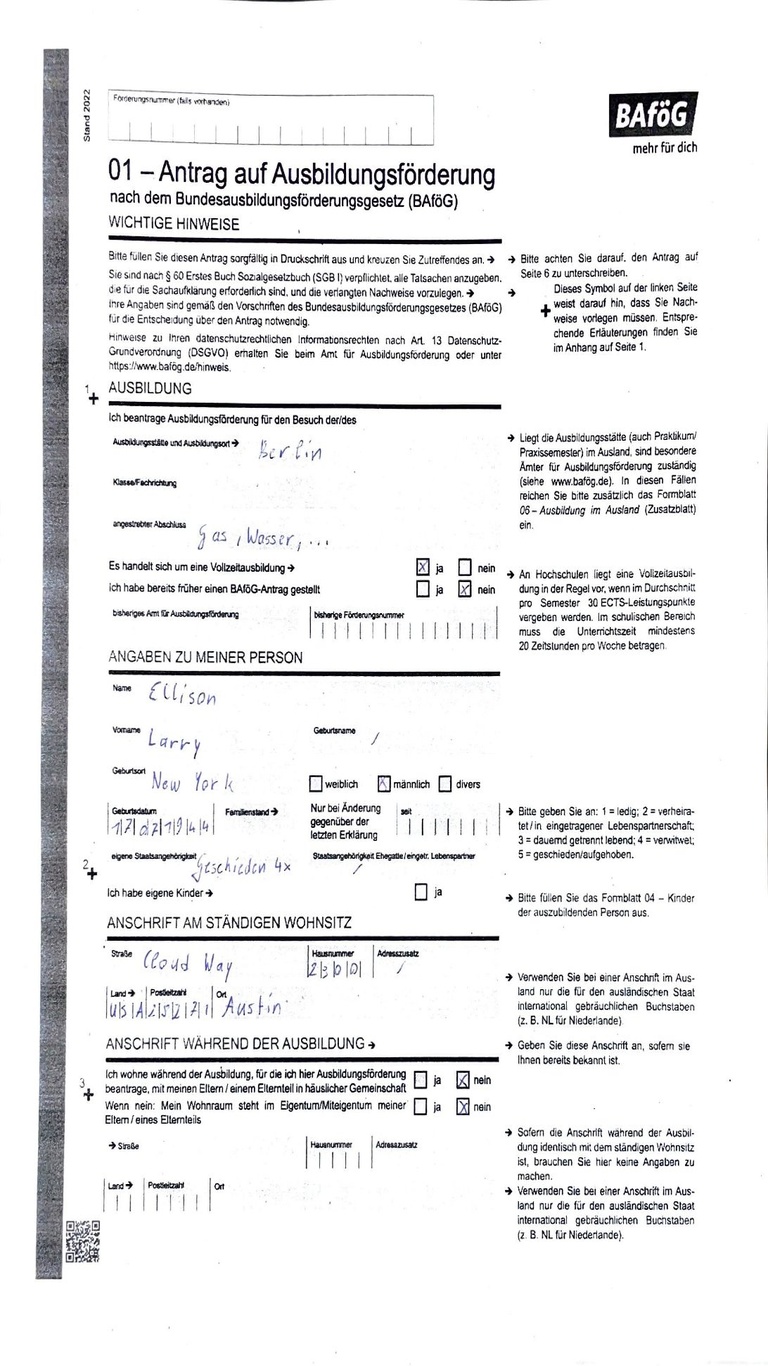 Stand 2022
Förderungsnummer (falls vorhanden)
BAföG
mehr für dich
01 – Antrag auf Ausbildungsförderung
nach dem Bundesausbildungsförderungsgesetz (BAföG)
WICHTIGE HINWEISE
Bitte füllen Sie diesen Antrag sorgfältig in Druckschrift aus und kreuzen Sie Zutreffendes an. →
Sie sind nach § 60 Erstes Buch Sozialgesetzbuch (SGB I) verpflichtet, alle Tatsachen anzugeben,
die für die Sachaufklärung erforderlich sind, und die verlangten Nachweise vorzulegen. →
Ihre Angaben sind gemäß den Vorschriften des Bundesausbildungsförderungsgesetzes (BAföG)
für die Entscheidung über den Antrag notwendig.
Hinweise zu Ihren datenschutzrechtlichen Informationsrechten nach Art. 13 Datenschutz-
Grundverordnung (DSGVO) erhalten Sie beim Amt für Ausbildungsförderung oder unter
https://www.bafög.de/hinweis.
→ Bitte achten Sie darauf, den Antrag auf
Seite 6 zu unterschreiben.
→ Dieses Symbol auf der linken Seite
+ weist darauf hin, dass Sie Nach-
weise vorlegen müssen. Entspre-
chende Erläuterungen finden Sie
im Anhang auf Seite 1.
1 +
AUSBILDUNG
Ich beantrage Ausbildungsförderung für den Besuch der/des
Ausbildungsstätte und Ausbildungsort → Berlin
Klasse/Fachrichtung
angestrebter Abschluss Gas, Wasser, ...
Es handelt sich um eine Vollzeitausbildung → X ja nein
Ich habe bereits früher einen BAföG-Antrag gestellt ja X nein
bisheriges Amt für Ausbildungsförderung bisherige Förderungsnummer
→ Liegt die Ausbildungsstätte (auch Praktikum/
Praxissemester) im Ausland, sind besondere
Ämter für Ausbildungsförderung zuständig
(siehe www.bafög.de). In diesen Fällen
reichen Sie bitte zusätzlich das Formblatt
06 – Ausbildung im Ausland (Zusatzblatt)
ein.
→ An Hochschulen liegt eine Vollzeitausbil-
dung in der Regel vor, wenn im Durchschnitt
pro Semester 30 ECTS-Leistungspunkte
vergeben werden. Im schulischen Bereich
muss die Unterrichtszeit mindestens
20 Zeitstunden pro Woche betragen.
ANGABEN ZU MEINER PERSON
Name Ellison
Vorname Larry Geburtsname /
Geburtsort New York weiblich X männlich divers
Geburtsdatum Familienstand → Nur bei Änderung seit
17071944 gegenüber der
letzten Erklärung
2 +
eigene Staatsangehörigkeit Geschieden 4x Staatsangehörigkeit Ehegatte/eingetr. Lebenspartner /
Ich habe eigene Kinder → ja
→ Bitte geben Sie an: 1 = ledig; 2 = verheira-
tet/in eingetragener Lebenspartnerschaft;
3 = dauernd getrennt lebend; 4 = verwitwet;
5 = geschieden/aufgehoben.
→ Bitte füllen Sie das Formblatt 04 – Kinder
der auszubildenden Person aus.
ANSCHRIFT AM STÄNDIGEN WOHNSITZ
Straße Cloud Way Hausnummer 2300 Adresszusatz /
Land → Postleitzahl Ort
USA 25271 Austin
→ Verwenden Sie bei einer Anschrift im Aus-
land nur die für den ausländischen Staat
international gebräuchlichen Buchstaben
(z. B. NL für Niederlande)
ANSCHRIFT WÄHREND DER AUSBILDUNG →
→ Geben Sie diese Anschrift an, sofern sie
Ihnen bereits bekannt ist.
3 +
Ich wohne während der Ausbildung, für die ich hier Ausbildungsförderung
beantrage, mit meinen Eltern / einem Elternteil in häuslicher Gemeinschaft ja X nein
Wenn nein: Mein Wohnraum steht im Eigentum/Miteigentum meiner ja X nein
Eltern / eines Elternteils
→ Straße Hausnummer Adresszusatz
Land → Postleitzahl Ort
→ Sofern die Anschrift während der Ausbil-
dung identisch mit dem ständigen Wohnsitz
ist, brauchen Sie hier keine Angaben zu
machen.
→ Verwenden Sie bei einer Anschrift im Aus-
land nur die für den ausländischen Staat
international gebräuchlichen Buchstaben
(z. B. NL für Niederlande).